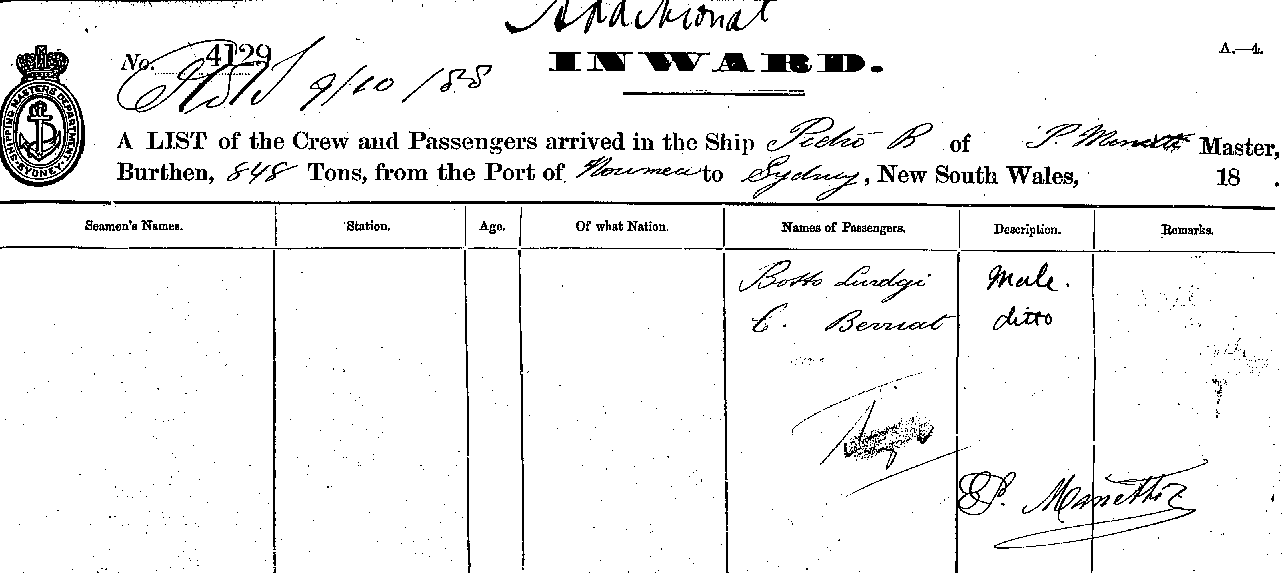 Additional
No. 4129
INWARD.
A.—4.
9/10/88
A LIST of the Crew and Passengers arrived in the Ship Pedro B of P. Manetti Master,
Burthen, 848 Tons, from the Port of Noumea to Sydney, New South Wales, 18 .
SHIPPING MASTERS DEPARTMENT SYDNEY
Seamen's Names. Station. Age. Of what Nation. Names of Passengers. Description. Remarks.
Botto Luidgi Male.
C. Bernat ditto
P. Manetti